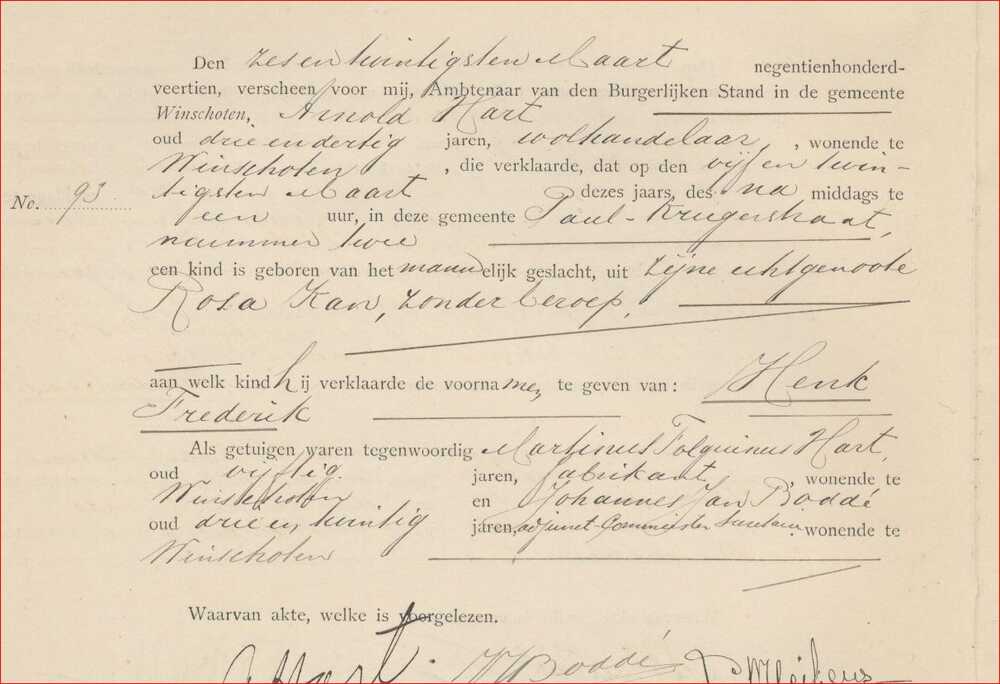 Den zes en twintigsten Maart negentienhonderd-
veertien, verscheen voor mij, Ambtenaar van den Burgerlijken Stand in de gemeente
Winschoten, Arnold Hart
oud drie en dertig jaren, wolhandelaar, wonende te
Winschoten, die verklaarde, dat op den vijf en twin-
No. 93 tigsten Maart dezes jaars, des na middags te
een uur, in deze gemeente Paul-Krugerstraat,
nummer twee
een kind is geboren van het mannelijk geslacht, uit zijne echtgenoote
Rosa Kan, zonder beroep,
aan welk kind hij verklaarde de voornamen te geven van: Henk
Frederik
Als getuigen waren tegenwoordig Martinus Folquinus Hart,
oud vijftig jaren, fabrikant, wonende te
Winschoten en Johannes Jan Boddé
oud drie en twintig jaren, adjunct-Commies ter Secretarie wonende te
Winschoten
Waarvan akte, welke is voorgelezen.
AHart. JJBoddé